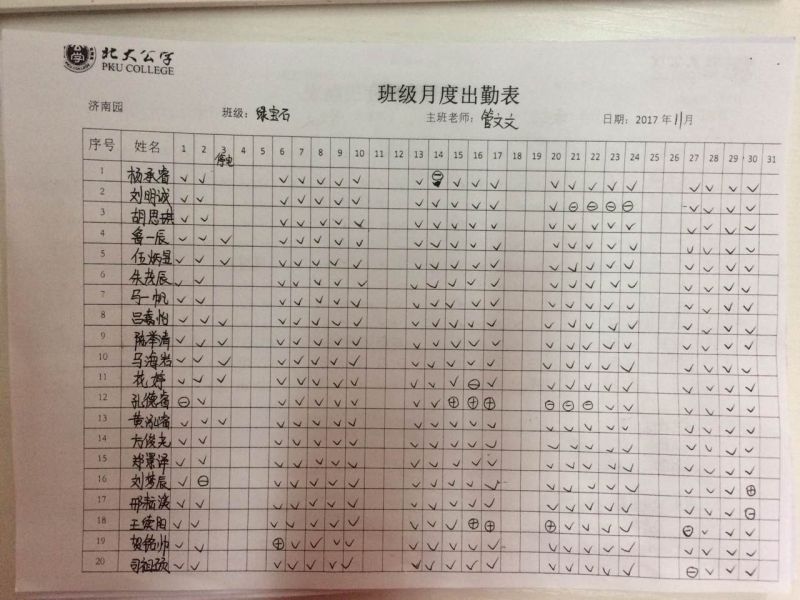 北大公学
PKU COLLEGE
班级月度出勤表
济南园 班级: 绿宝石 主班老师: 管文文 日期: 2017 年 11 月
序号 姓名 1 2 3 4 5 6 7 8 9 10 11 12 13 14 15 16 17 18 19 20 21 22 23 24 25 26 27 28 29 30 31
停电
1 杨承睿 ✓ ✓ ✓ ✓ ✓ ✓ ✓ ✓ ⊖ ✓ ✓ ✓ ✓ ✓ ✓ ✓ ✓ ✓ ✓ ✓ ✓
2 刘明诚 ✓ ✓ ✓ ✓ ✓ ✓ ✓ ✓ ✓ ✓ ✓ ✓ ✓ ⊖ ⊖ ⊖ ⊖ ✓ ✓ ✓ ✓
3 胡思琪 ✓ ✓ ✓ ✓ ✓ ✓ ✓ ✓ ✓ ✓ ✓ ✓ ✓ ✓ ✓ ✓ ✓ ✓ ✓ ✓ ✓
4 鲁一辰 ✓ ✓ ✓ ✓ ✓ ✓ ✓ ✓ ✓ ✓ ✓ ✓ ✓ ✓ ✓ ✓ ✓ ✓ ✓ ✓ ✓ ✓
5 伍炳昱 ✓ ✓ ✓ ✓ ✓ ✓ ✓ ✓ ✓ ✓ ✓ ✓ ✓ ✓ ✓ ✓ ✓ ✓ ✓ ✓ ✓ ✓
6 朱茂辰 ✓ ✓ ✓ ✓ ✓ ✓ ✓ ✓ ✓ ✓ ✓ ✓ ✓ ✓ ✓ ✓ ✓ ✓ ✓ ✓ ✓
7 马一帆 ✓ ✓ ✓ ✓ ✓ ✓ ✓ ✓ ✓ ✓ ✓ ✓ ✓ ✓ ✓ ✓ ✓ ✓ ✓ ✓ ✓
8 吕嘉怡 ✓ ✓ ✓ ✓ ✓ ✓ ✓ ✓ ✓ ✓ ✓ ✓ ✓ ✓ ✓ ✓ ✓ ✓ ✓ ✓ ✓ ✓
9 陈举清 ✓ ✓ ✓ ✓ ✓ ✓ ✓ ✓ ✓ ✓ ✓ ✓ ✓ ✓ ✓ ✓ ✓ ✓ ✓ ✓ ✓ ✓
10 马海岩 ✓ ✓ ✓ ✓ ✓ ✓ ✓ ✓ ✓ ✓ ✓ ✓ ✓ ✓ ✓ ✓ ✓ ✓ ✓ ✓ ✓ ✓
11 花婷 ✓ ✓ ✓ ✓ ✓ ✓ ✓ ✓ ✓ ✓ ✓ ⊖ ✓ ✓ ✓ ✓ ✓ ✓ ✓ ✓ ✓ ✓
12 孔德睿 ⊖ ✓ ✓ ✓ ✓ ✓ ✓ ✓ ✓ ⊕ ⊕ ⊕ ⊖ ⊖ ⊖ ✓ ✓ ✓ ✓ ✓ ✓
13 黄泓睿 ✓ ✓ ✓ ✓ ✓ ✓ ✓ ✓ ✓ ✓ ✓ ✓ ✓ ✓ ✓ ✓ ✓ ✓ ✓ ✓ ✓ ✓
14 方俊尧 ✓ ✓ ✓ ✓ ✓ ✓ ✓ ✓ ✓ ✓ ✓ ✓ ✓ ✓ ✓ ✓ ✓ ✓ ✓ ✓ ✓
15 郑景泽 ✓ ✓ ✓ ✓ ✓ ✓ ✓ ✓ ✓ ✓ ✓ ✓ ✓ ✓ ✓ ✓ ✓ ✓ ✓ ✓ ✓
16 刘梦辰 ✓ ⊖ ✓ ✓ ✓ ✓ ✓ ✓ ✓ ✓ ✓ ✓ ✓ ✓ ✓ ✓ ✓ ✓ ✓ ✓ ⊕
17 邢 ✓ ✓ ✓ ✓ ✓ ✓ ✓ ✓ ✓ ✓ ✓ ✓ ✓ ✓ ✓ ✓ ✓ ✓ ✓ ✓ ⊖
18 王 ✓ ✓ ✓ ✓ ✓ ✓ ✓ ✓ ✓ ✓ ⊕ ⊕ ⊕ ✓ ✓ ✓ ✓ ⊖ ✓ ✓ ✓
19 贺铭帅 ✓ ✓ ⊕ ✓ ✓ ✓ ✓ ✓ ✓ ✓ ✓ ✓ ✓ ✓ ✓ ✓ ✓ ✓ ✓ ✓ ✓
20 司祖硕 ✓ ✓ ✓ ✓ ✓ ✓ ✓ ✓ ✓ ✓ ✓ ✓ ✓ ✓ ✓ ✓ ✓ ⊖ ✓ ✓ ✓